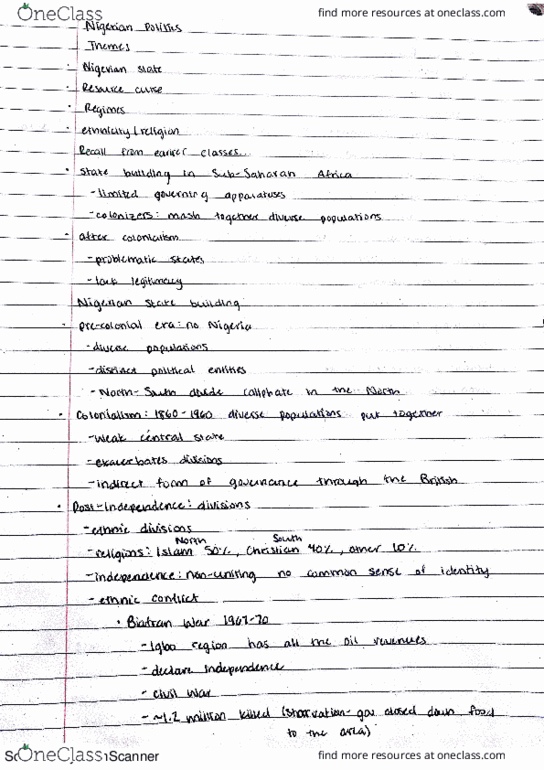 OneClass find more resources at oneclass.com
Nigerian Politics
Themes
· Nigerian state
· Resource curse
· Regimes
· ethnicity/religion
Recall from earlier classes
· State building in Sub-Saharan Africa
-limited governing apparatuses
-colonizers: mash together diverse populations
· after colonialism
-problematic states
-lack legitimacy
Nigerian State building
· pre-colonial era: no Nigeria
-diverse populations
-distinct political entities
-North-South divide caliphate in the North
· Colonialism: 1860-1960 diverse populations put together
-weak central state
-exacerbates divisions
-indirect form of governance through the British
· Post-Independence: divisions
-ethnic divisions
North South
-religions: Islam 50%, Christian 40%, other 10%
-independence: non-uniting no common sense of identity
-ethnic conflict
· Biafran War 1967-70
-Igbo region has all the oil revenues
-declare independence
-civil war
-~1.2 million killed (starvation- gov closed down food
to the area)
OneClass Scanner find more resources at oneclass.com